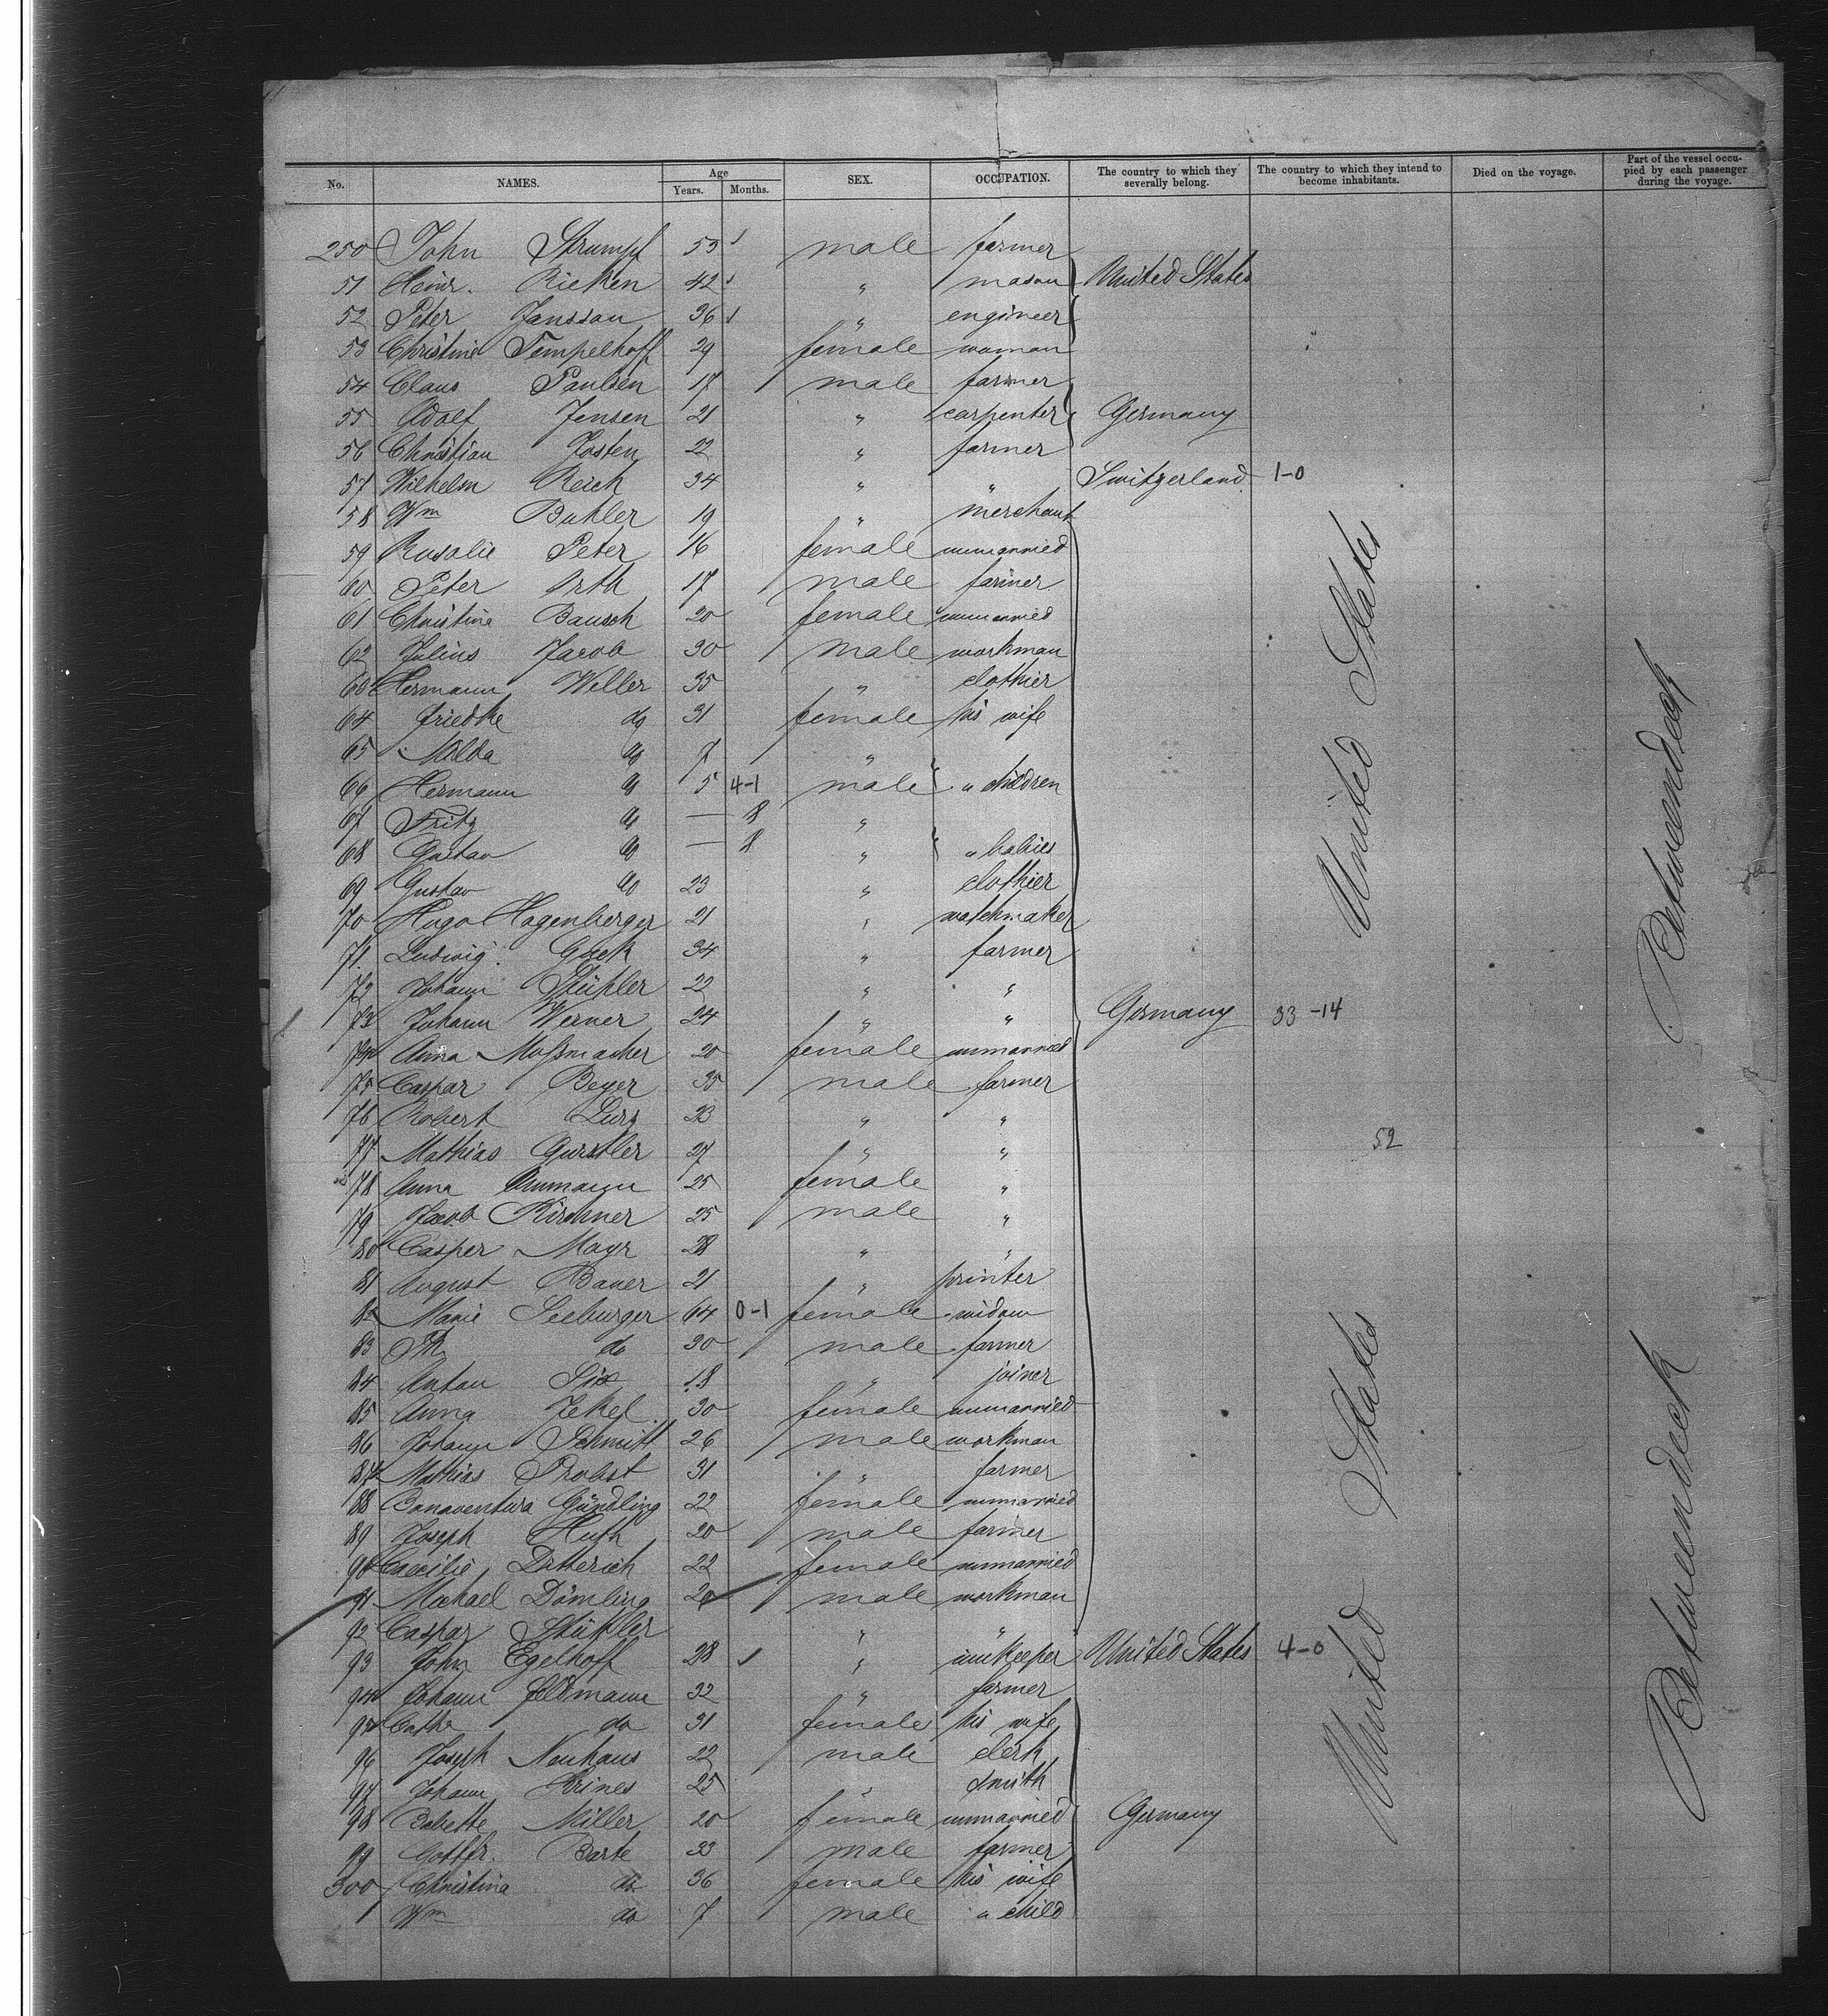 No. NAMES. Age Years. Months. SEX. OCCUPATION. The country to which they severally belong. The country to which they intend to become inhabitants. Died on the voyage. Part of the vessel occupied by each passenger during the voyage.
250 John Strumpf 53 male farmer
51 Heinr. Rieken 42 " mason United States
52 Peter Janssau 36 " engineer
53 Christine Tempelhoff 29 female woman
54 Claus Paulsen 17 male farmer
55 Adolf Jensen 21 " carpenter Germany
56 Christian Josten 22 " farmer
57 Wilhelm Reich 34 " " Switzerland 1-0
58 Wm Buhler 19 " merchant
59 Rosalie Peter 16 female unmarried
60 Peter Orth 17 male farmer
61 Christina Bausch 20 female unmarried
62 Julius Jacob 30 male workman
63 Hermann Weller 35 " clothier
64 Friedke do 31 female his wife
65 Milda do 7 "
66 Hermann do 5 4-1 male " children
67 Fritz do — 8 "
68 Gustav do — 8 " " babies
69 Gustav do 23 " clothier
70 Hugo Hagenberger 21 " watchmaker
71 Ludwig Gack 34 " farmer
72 Johann Stühler 22 " "
73 Johann Werner 24 " " Germany 33-14
74 Anna Moßmacher 20 female unmarried
75 Caspar Beyer 35 male farmer
76 Robert Lurz 23 " "
77 Mathias Gurstler 27 " " 52
78 Anna Aumann 25 female "
79 Jacob Kirchner 25 male "
80 Casper Mayr 28 " "
81 August Bauer 21 " printer
82 Marie Seeburger 64 0-1 female widow
83 Th do 30 male farmer
84 Anton Six 18 " joiner
85 Anna Jekel 30 female unmarried
86 Johann Schmitt 26 male workman
87 Mathias Probst 31 " farmer
88 Bonaventura Gündling 22 female unmarried
89 Joseph Huth 20 male farmer
90 Caecilie Ditterich 22 female unmarried
91 Michael Dömling 20 male workman
92 Caspar Stühler " "
93 John Egelhoff 28 " innkeeper United States 4-0
94 Johann Feldmann 32 " farmer
95 Cathe do 31 female his wife
96 Joseph Neuhaus 22 male clerk
97 Johann Krines 25 " smith
98 Babette Miller 20 female unmarried Germany
99 Gottfr. Barte 33 male farmer
300 Christina do 36 female his wife
Wm do 7 male " child
United States
United States
Betweendeck
Betweendeck